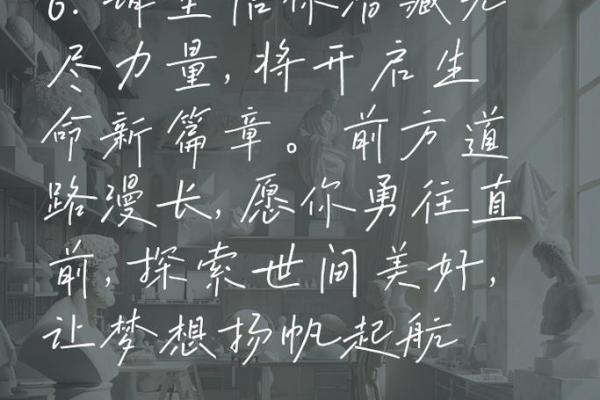 6. 坚信你潜藏无
尽力量,将开启生
命新篇章。前方道
路漫长,愿你勇往直
前,探索世间美好,
让梦想扬帆起航